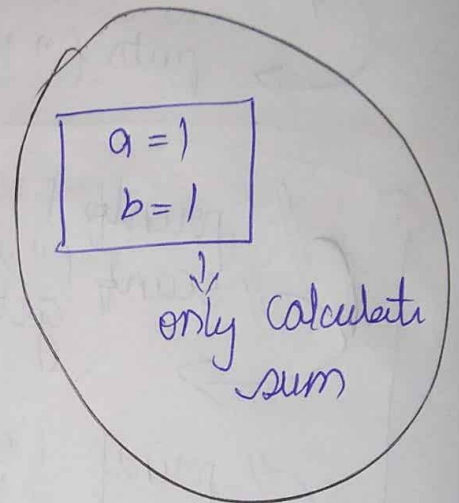 a = 1
b = 1
only calculate
sum